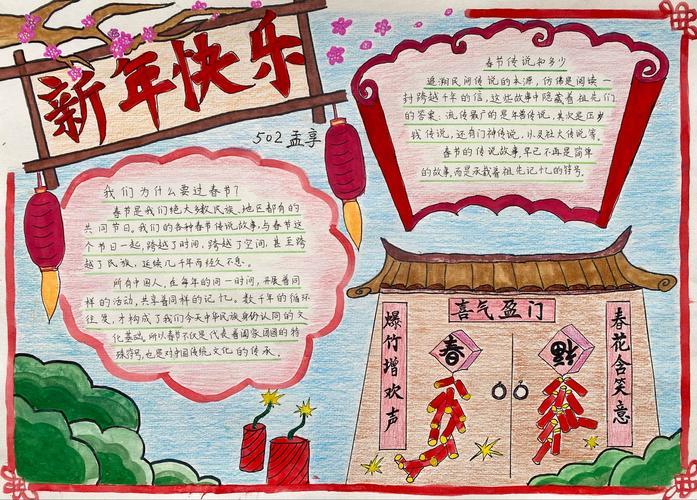 新年快乐
502 孟享
我们为什么要过春节?
春节是我们绝大多数民族、地区都有的
共同节日。我们的各种春节传说故事,与春节这
个节日一起,跨越了时间,跨越了空间,甚至跨
越了民族,延续几千年而经久不息。
所有中国人,在每年的同一时间,开展着同
样的活动,共享着同样的记忆。数千年的循环
往复,才构成了我们今天中华民族身份认同的文
化基础,所以春节不仅是代表着阖家团圆的特
殊符号,也是对中国传统文化的传承。
春节传说知多少
追溯民间传说的本源,仿佛是阅读一
封跨越千年的信,这些故事中隐藏着祖先们
的答案。流传最广的是年兽传说,其次是压岁
钱传说,还有门神传说,以及社火传说等。
春节的传说故事,早已不再是简单
的故事,而是承载着祖先记忆的符号。
喜气盈门
爆竹增欢声
春花含笑意
春